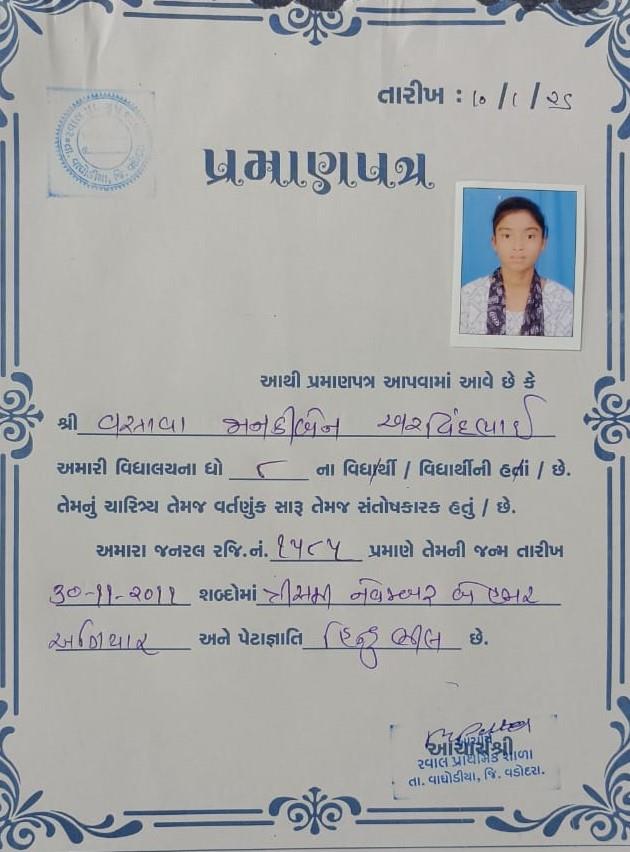 તારીખ : ૧૦ / ૮ / ૨૬
રવાલ પ્રા.
તા. વાઘોડીયા, જિ. વડોદરા
પ્રમાણપત્ર
આથી પ્રમાણપત્ર આપવામાં આવે છે કે
શ્રી વસાવા મનદીબેન અરવિંદભાઈ
અમારી વિદ્યાલયના ધો ૮ ના વિદ્યાર્થી / વિદ્યાર્થીની હતાં / છે.
તેમનું ચારિત્ર્ય તેમજ વર્તણુંક સારૂ તેમજ સંતોષકારક હતું / છે.
અમારા જનરલ રજિ.નં. ૧૫૮૫ પ્રમાણે તેમની જન્મ તારીખ
૩૦-૧૧-૨૦૧૧ શબ્દોમાં ત્રીસમી નવેમ્બર બે હજાર
અગિયાર અને પેટાજ્ઞાતિ હિન્દુ ભીલ છે.
આચાર્ય
આચાર્યશ્રી
રવાલ પ્રાથમિક શાળા
તા. વાઘોડીયા, જિ. વડોદરા.